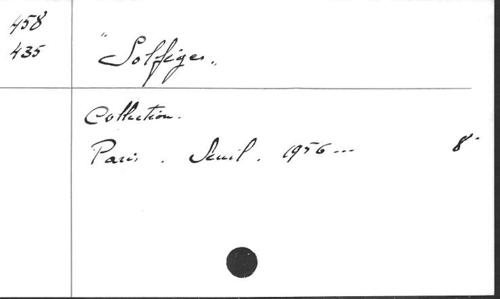 458
435
"Solfèges"
Collection.
Paris. Seuil. 1956 ...
8°